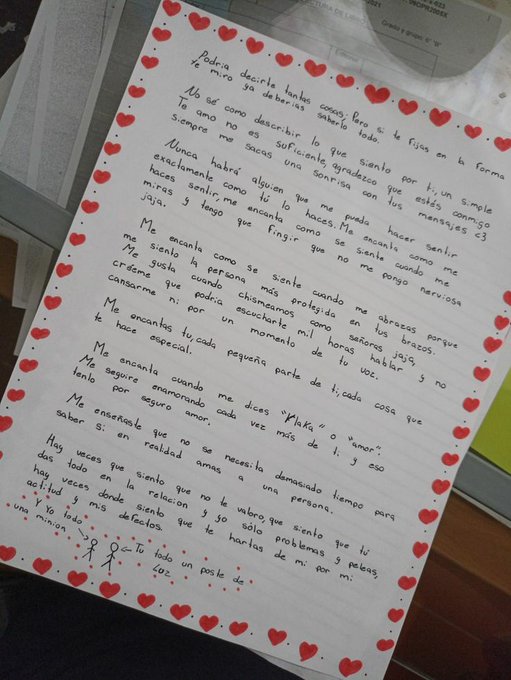 Grado y grupo: 6° "B"
Podría decirte tantas cosas; Pero si te fijas en la forma
te miro ya deberías saberlo todo.
No sé como describir lo que siento por ti, un simple
Te amo no es suficiente, agradezco que estés conmigo
siempre me sacas una sonrisa con tus mensajes <3
Nunca habrá alguien que me pueda hacer sentir
exactamente como tú lo haces. Me encanta como me
haces sentir, me encanta como se siente cuando me
miras y tengo que fingir que no me pongo nerviosa
jaja.
Me encanta como se siente cuando me abrazas porque
me siento la persona más protegida en tus brazos.
Me gusta cuando chismeamos como señoras jaja,
créeme que podría escucharte mil horas hablar y no
cansarme ni por un momento de tu voz.
Me encantas tu, cada pequeña parte de ti, cada cosa que
te hace especial.
Me encanta cuando me dices "Flaka" o "amor".
Me seguire enamorando cada vez más de ti y eso
tenlo por seguro amor.
Me enseñaste que no se necesita demasiado tiempo para
saber si en realidad amas a una persona.
Hay veces que siento que no te valoro, que siento que tú
das todo en la relación y yo sólo problemas y peleas,
hay veces donde siento que te hartas de mi por mi
actitud y mis defectos.
Y Yo todo
una minion
Tu todo un poste de
Luz